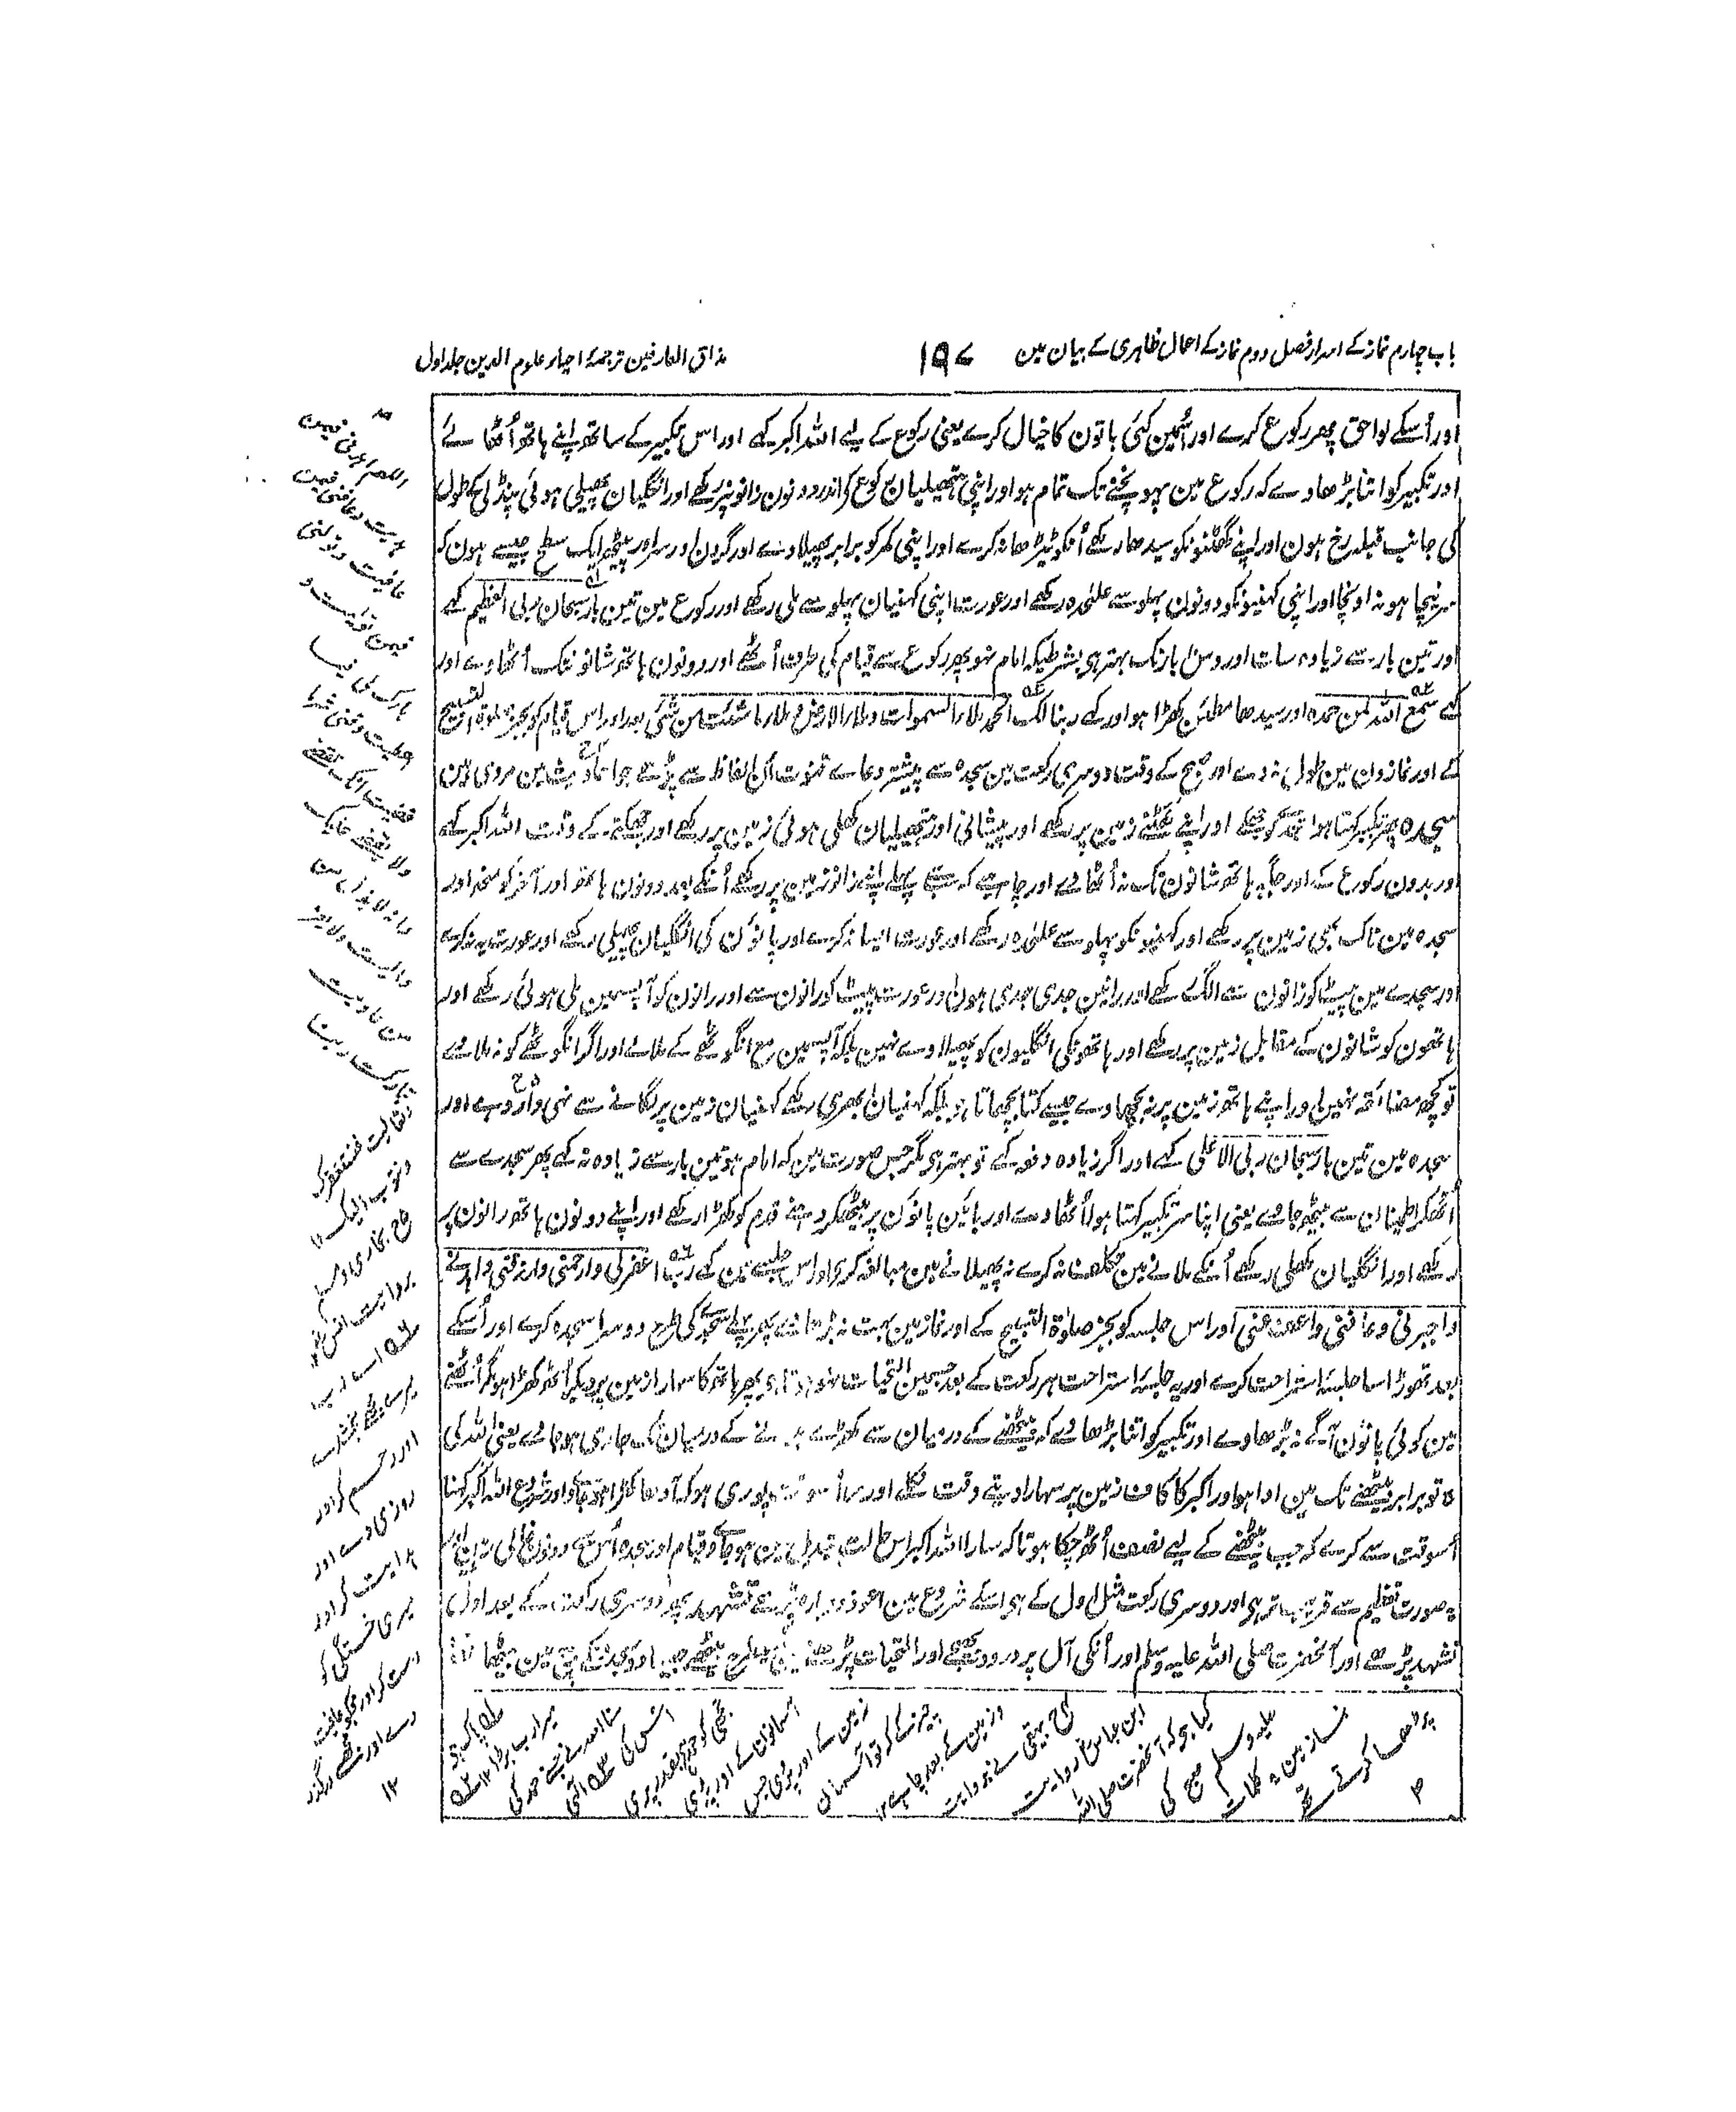 باب چہارم نماز کے اسرار فصل دوم نماز کے اعمال ظاہری کے بیان مین
۱۹۷
مذاق العارفین ترجمہ احیاء علوم الدین جلد اول
اور اُسکے لواحق پھر رکوع کرے اور اُسمین کئی باتون کا خیال کرے یعنی رکوع کے لیے اللہ اکبر کہے اور اس تکبیر کے ساتھ اپنے ہاتھ اُٹھائے
اور تکبیر کو اتنا بڑھاوے کہ رکوع مین پہونچنے تک تمام ہو اور اپنی ہتھیلیان رکوع کے اندر دونون زانو پر رکھے اور انگلیان پھیلی ہوئی پنڈلی کے طول
کی جانب قبلہ رخ ہون اور اپنے گھٹنونکو سیدھا رکھے اُنکو ٹیڑھا نہ کرے اور اپنی کمر کو برابر پھیلاوے اور گردن اور سر اور پیٹھ ایک سطح جیسے ہون کہ
سر نیچا ہو نہ اونچا اور اپنی کہنیونکو دونون پہلو سے علیٰحدہ رکھے اور عورت اپنی کہنیان پہلو سے ملی رکھے اور رکوع مین تین بار سبحان ربی العظیم کہے
اور تین بار سے زیادہ سات اور دس بار تک بہتر ہی بشرطیکہ امام نہو پھر رکوع سے قیام کی طرف اُٹھے اور دونون ہاتھ شانونتک اُٹھاوے اور
کہے سمع اللہ لمن حمدہ اور سیدھا مطمئن کھڑا ہو اور کہے ربنا لک الحمد ملاء السموات و ملاء الارض و ملاء ما شئت من شئی بعد اور اس قیام کو بجز صلوۃ التسبیح
کے اور نمازون مین طول نہ دے اور صبح کے وقت دوسری رکعت مین سجدہ سے پیشتر دعاے قنوت اُن الفاظ سے پڑھے جو احادیث مین مروی ہین
سجدہ پھر تکبیر کہتا ہوا سجدہ کو جھکے اور اپنے گھٹنے زمین پر رکھے اور پیشانی اور ہتھیلیان کھلی ہوئی زمین پر رکھے اور جھکنے کے وقت اللہ اکبر کہے
اور بدون رکوع کے اور جگہ ہاتھ شانون تک نہ اُٹھائے اور چاہیے کہ سب سے پہلے اپنے زانو زمین پر رکھے اُنکے بعد دونون ہاتھ اور آخر کو منہ اور
سجدہ مین ناک بھی زمین پر رکھے اور کہنیونکو پہلو سے علیٰحدہ رکھے اور عورت ایسا نہ کرے اور پانوٗن کی انگلیان پھیلی رکھے اور عورت یہ نہ کرے
اور سجدے مین پیٹ کو زانون سے الگ رکھے اور رانین جدی جدی ہون اور عورت پیٹ کو رانون سے اور رانون کو آپسمین ملی ہوئی رکھے اور
ہاتھون کو شانون کے مقابل زمین پر رکھے اور ہاتھونکی انگلیون کو پھیلاوے نہین بلکہ آپسمین مع انگوٹھے کے ملائے اور اگر انگوٹھے کو نہ ملائے
تو کچھ مضائقہ نہین اور اپنے ہاتھ زمین پر نہ بچھاوے جیسے کتا بچھاتا ہی بلکہ کہنیان ابھری رکھے کہ کہنیان زمین پر لگانے سے نہی وارد ہے اور
سجدہ مین تین بار سبحان ربی الاعلی کہے اور اگر زیادہ دفعہ کہے تو بہتر ہی مگر جس صورت مین کہ امام ہو تین بار سے زیادہ نہ کہے پھر سجدے سے
اُٹھکر اطمینان سے بیٹھ جاوے یعنی اپنا سر تکبیر کہتا ہوا اُٹھاوے اور بائین پانوٗن پر بیٹھکر دہنے قدم کو کھڑا رکھے اور اپنے دونون ہاتھ رانون پر
رکھے اور انگلیان کھلی رکھے اُنکے ملانے مین تکلف نہ کرے نہ پھیلانے مین مبالغہ کرے اور اس جلسے مین کہے رب اغفرلی وارحمنی وارزقنی واہدنی
واجبرنی وعافنی واعف عنی اور اس جلسہ کو بجز صلوٰۃ التسبیح کے اور نماز مین بہت نہ بڑھائے پھر پہلے سجدے کی طرح دوسرا سجدہ کرے اور اُسکے
بعد تھوڑا سا جلسۂ استراحت کرے اور یہ جلسۂ استراحت ہر رکعت کے بعد جسمین التحیات نہو ہوتا ہی پھر ہاتھ کا سہارا زمین پر دیکر اُٹھ کھڑا ہو مگر اُٹھنے
مین کوئی پانوٗن آگے نہ بڑھاوے اور تکبیر کو اتنا بڑھائے کہ بیٹھنے کے درمیان سے کھڑے ہونے کے درمیان تک جاری ہو جائے یعنی اللہ کی
ہ تو برابر بیٹھنے تک مین ادا ہو اور اکبر کا کاف زمین پر سہارا دیتے وقت نکلے اور را اُسوقت پوری ہو کہ آدھا کھڑا ہو جاوے اور شروع اللہ اکبر کہنا
اُسوقت سے کرے کہ جب بیٹھنے کے لیے نصف اُٹھ چکا ہو تاکہ سارا اللہ اکبر اس حالت تبدیل مین ہو جاوے قیام اور سجدہ اُس سے دونون خالی رہین اور
یہ صورت تعظیم سے قریب تر ہی اور دوسری رکعت مثل اول کے ہی اسکے شروع مین اعوذ دوبارہ پڑھے تشہد پھر دوسری رکعت کے بعد اول
تشہد پڑھے اور آنحضرت صلی اللہ علیہ وسلم اور اُنکی آل پر درود بھیجے اور التحیات پڑھنے مین اسیطرح بیٹھے جیسا دو سجدونکے بیچ مین بیٹھا تھا
اللھم اہدنی فیمن
ہدیت وعافنی فیمن
عافیت وتولنی
فیمن تولیت و
بارک لی فیما
اعطیت وقنی شر ما
قضیت انک تقضی
ولا یقضی علیک
وانہ لا یذل من
والیت ولا یعز
من عادیت
تبارکت ربنا
وتعالیت فنستغفرک
ونتوب الیک ۱۲
بخاری و مسلم
بروایت انس
اے رب
میرے مجھے بخشدے
اور رحم کر اور
روزی دے اور
ہدایت کر اور
میری خستگی کو
درست کر اور مجھکو عافیت
دے اور مجھسے درگذر
۱۲
پاک ہی
میرا رب بڑا ۱۲
سنا اللہ نے جسنے حمد کی
اُس کی الٰہی
تجھی کو حمد ہی بقدر پری
آسمانون کے اور پری
زمین کے اور پری جس
چیز کے کہ تو آسمان
وزمین کے بعد چاہے ۱۲
بیہقی نے بروایت
ابن عباس روایت
کیا ہو کہ آنحضرت صلی اللہ
علیہ وسلم صبح کی
نماز مین یہ کلمات
پڑھا کرتے تھے